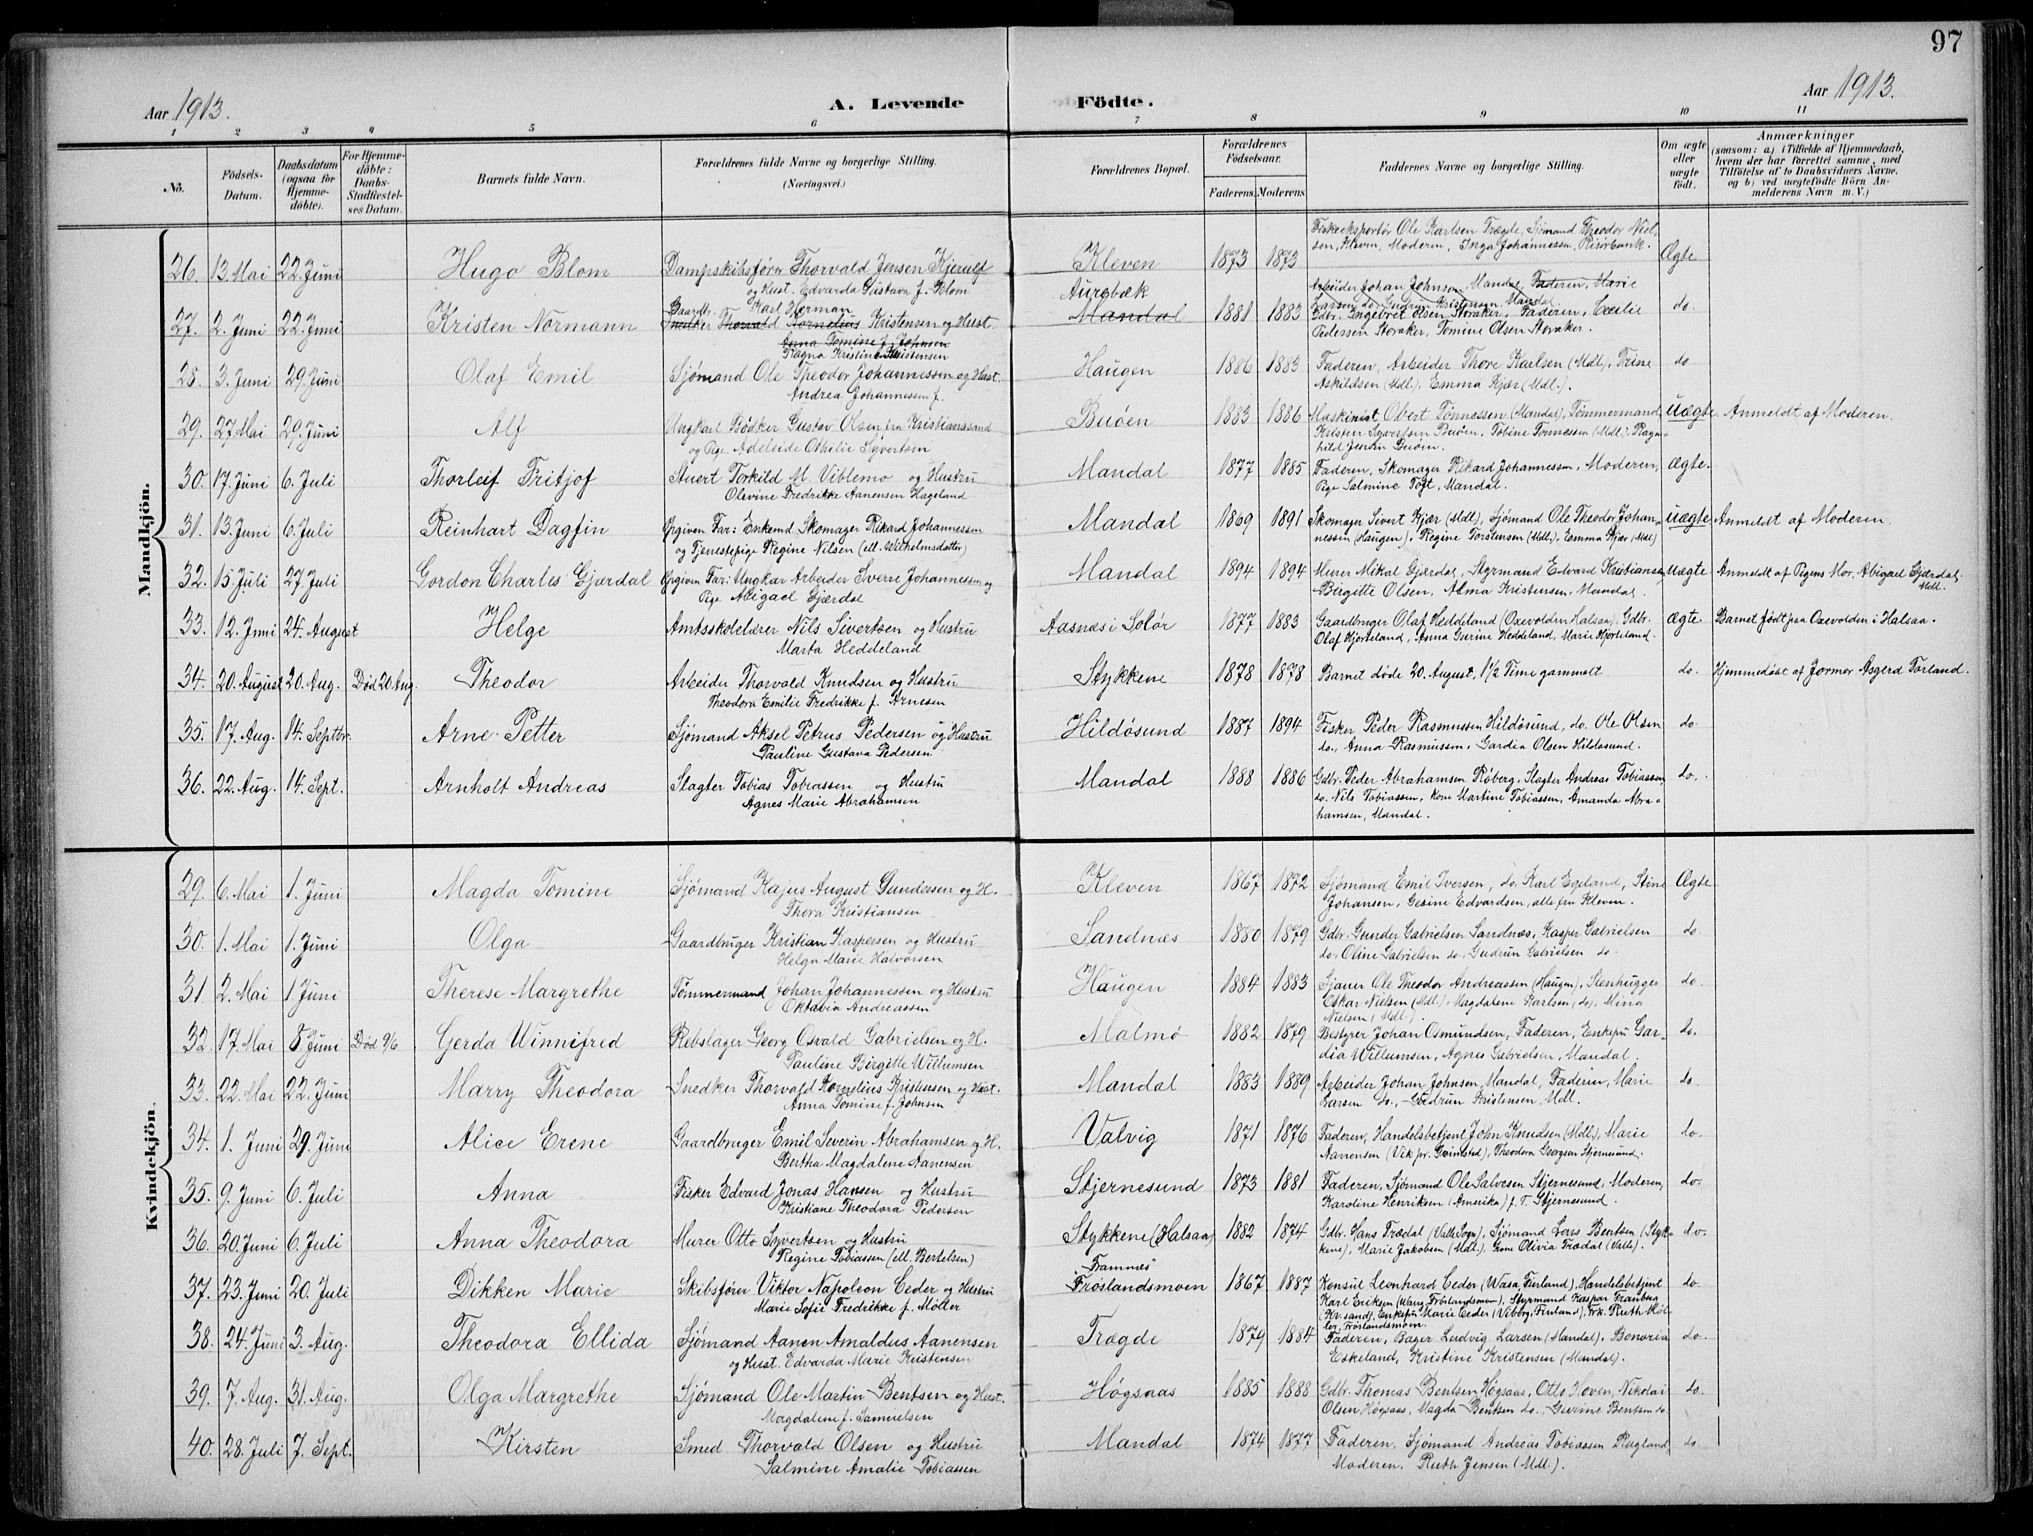 97
Aar 1913.
A. Levende Födte.
Aar 1913.
1 2 3 4 5 6 7 8 9 10 11
No.
Födsels-
Datum.
Daabsdatum
(ogsaa for
Hjemme-
döbte).
For Hjemme-
döbte:
Daabs-
Stadfæstel-
ses Datum.
Barnets fulde Navn.
Forældrenes fulde Navne og borgerlige Stilling.
(Næringsvei.)
Forældrenes Bopæl.
Forældrenes
Födselsaar.
Faderens. Moderens.
Faddernes Navne og borgerlige Stilling.
Om ægte
eller
uægte
födt.
Anmærkninger
(saasom: a) i Tilfælde af Hjemmedaab,
hvem der har forrettet samme, med
Tilföielse af to Daabsvidners Navne.
og b) ved uægtefödte Börn An-
melderens Navn m. V.)
Mandkjön.
Fiskeeksportör Ole Karlsen Trægde, Sjömand Theodor Niel-
sen, Kleven, Moderen, Inga Johannessen, Risörbank.
26. 13. Mai 22. Juni Hugo Blom Dampskibsförer Thorvald Jensen Kjerulf Kleven 1873 1873 Ægte
og Hust. Edvarda Gustava f. Blom
Aurebæk
Arbeider Johan Johnsen, Mandal, Faderen, Marie
Larsen do. Gudrun Kristensen, Mandal.
Gaardbr. Karl Herman
27. 2. Juni 22. Juni Kristen Normann Snedker Thorvald Kornelius Kristensen og Hust. Mandal 1881 1883 Gdbr. Ingebret Olsen Storaker, Faderen, Cecilie do.
Pedersen Storaker, Tomine Olsen Storaker.
Anna Tomine f. Johnsen
Ragna Kristine Kristensen
28. 3. Juni 29. Juni Olaf Emil Sjömand Ole Theodor Johannessen og Hust. Haugen 1886 1883 Faderen, Arbeider Thore Karlsen (Mdl), Trine do
Andrea Johannessen f.
Askildsen (Mdl.), Emma Kjær (Mdl.).
29. 27. Mai 29. Juni Alf Ungkarl Bödker Gustav Olsen fra Kristianssand Buöen 1883 1886 Maskinist Obert Tönnessen (Mandal), Tömmermand uægte. Anmeldt af Moderen.
og Pige Adeleide Othilie Syvertsen
Kristen Syvertsen Buöen, Tobine Tönnessen (Mdl), Ragn-
hild Jensen Buöen.
30. 17. Juni 6. Juli Thorleif Fritjof Stuert Torkild M. Viblemo og Hustru Mandal 1877 1885 Faderen, Skomager Rikard Johannessen, Moderen, Ægte.
Olevine Fredrikke Aanensen Hageland
Pige Salmine Fogt, Mandal.
31. 13. Juni 6. Juli Reinhart Dagfin Opgiven Far: Enkemd. Skomager Rikard Johannessen Mandal 1869 1891 Skomager Sivert Kjær (Mdl), Sjömand Ole Theodor Johan- uægte Anmeldt af Moderen.
og Tjenestepige Regine Nilsen (ell. Wilhelmsdatter)
nessen (Haugen). Regine Torstensen (Mdl), Emma Kjær (Mdl)
32. 15. Juli 27. Juli Gordon Charles Gjærdal Opgiven Far: Ungkar Arbeider Sverre Johannessen og Mandal 1894 1894 Murer Mikal Gjærdal, Styrmand Edvard Kristiansen, Uægte Anmeldt af Pigens Mor, Abigael Gjærdal. Mdl.
Pige Abigael Gjærdal
Birgitte Olsen, Alma Kristensen, Mandal.
33. 12. Juni 24. August Helge Amtsskolelærer Nils Sivertsen og Hustru Aasnæs i Solör 1877 1883 Gaardbruger Olaf Heddeland (Oxevolden Halsaa), Gdbr. ægte. Barnet född paa Oxevolden i Halsaa.
Marta Heddeland
Olaf Hjorteland, Anna Gurine Heddeland, Marie Hjorteland.
34. 20. August 20. Aug. Död 20 Aug. Theodor Arbeider Thorvald Knudsen og Hustru Stykkene 1878 1878 Barnet döde 20. August, 1½ Time gammelt do. Hjemmedöbt af Jormor Asgerd Torland.
Theodora Emilie Fredrikke f. Arnesen
35. 17. Aug. 14. Septbr. Arne Petter Sjömand Aksel Petrus Pedersen og Hustru Hildösund 1887 1894 Fisker Peder Rasmussen Hildösund, do. Ole Olsen do.
Pauline Gustava Pedersen
do., Anna Rasmussen, Gardia Olsen Hildösund.
36. 22. Aug. 14. Sept. Arnholt Andreas Slagter Tobias Tobiassen og Hustru Mandal 1888 1886 Gdbr. Peder Abrahamsen Röberg, Slagter Andreas Tobiassen, do.
Agnes Marie Abrahamsen
do. Nils Tobiassen, kone Martine Tobiassen, Amanda Abra-
hamsen, Mandal.
Kvindekjön.
29. 6. Mai 1. Juni Magda Tomine Sjömand Kajus August Gundersen og H. Kleven 1867 1872 Sjömand Emil Iversen, do. Karl Egeland, Stine Ægte
Thora Kristiansen
Johansen, Gesine Edvardsen, alle fra Kleven.
30. 1. Mai 1. Juni Olga Gaardbruger Kristian Kaspersen og Hustru Sandnæs 1880 1879 Gdbr. Gunder Gabrielsen Sandnæs, Kasper Gabrielsen do
Helga Marie Halvorsen
do. Oline Gabrielsen do. Gudrun Gabrielsen do.
31. 2. Mai 1. Juni Therese Margrethe Tömmermand Johan Johannessen og Hustru Haugen 1884 1883 Sjauer Ole Theodor Andreassen (Haugen), Stenhugger do.
Oktavia Andreassen
Eskar Nielsen (Mdl.) Magdalene Karlsen (do), Mina
Nielsen (Mdl.)
32. 17. Mai 8. Juni Död 9/6 Gerda Winnifred Rebslager Georg Osvald Gabrielsen og H. Malmö 1882 1879 Bestyrer Johan Osmundsen, Faderen, Enkefru Gar- do.
Pauline Birgitte Willumsen
dia Willumsen, Agnes Gabrielsen, Mandal.
33. 22. Mai 22. Juni Marry Theodora Snedker Thorvald Kornelius Kristensen og Hust. Mandal 1883 1889 Arbeider Johan Johnsen, Mandal, Faderen, Marie do.
Anna Tomine f. Johnsen
Larsen do., Gudrun Kristensen, Mdl.
34. 1. Juni 29. Juni Alice Erene Gaardbruger Emil Severin Abrahamsen og H. Valvig 1871 1876 Faderen, Handelsbetjent John Knudsen (Mdl.), Marie do.
Bertha Magdalene Aanensen
Aanensen (Vik pr. Grimstad), Theodora Georgsen Stjernesund.
35. 9. Juni 6. Juli Anna Fisker Edvard Jonas Hansen og Hustru Stjernesund 1873 1881 Faderen, Sjömand Ole Salvesen Stjernesund, Moderen, do.
Kristiane Theodora Pedersen
Karoline Henriksen (Amerika) f. T. Stjernesund.
36. 20. Juni 6. Juli Anna Theodora Murer Otto Syvertsen og Hustru Stykkene (Halsaa) 1882 1874 Gdbr. Hans Trædal (Valle Sogn), Sjömand Lars Bentsen (Styk- do.
Regine Tobiassen (ell. Bertelsen)
kene), Marie Jakobsen (Mdl), Kone Olivia Trædal (Valle).
"Framnes"
37. 23. Juni 20. Juli Dikken Marie Skibsförer Viktor Napoleon Ceder og Hustru Fröslandsmoen 1867 1887 Konsul Leonhard Ceder (Wasa Finland), Handelsbetjent do.
Marie Sofie Fredrikke f. Möller
Karl Eriksen (Wang Fröslandsmoen), Styrmand Kaspar Tranberg
(Kr.sand), Enkefru Marie Ceder (Viborg, Finland), Frk. Ruth Möl-
ler, Fröslandsmoen
38. 24. Juni 3. Aug. Theodora Ellida Sjömand Aanen Arnaldus Aanensen Trægde 1879 1884 Faderen, Bager Ludvig Larsen (Mandal), Bonoria do.
og Hust. Edvarda Marie Kristensen
Eskeland, Kristine Kristensen (Mandal).
39. 7. Aug. 31. Aug. Olga Margrethe Sjömand Ole Martin Bentsen og Hust. Högsaas 1885 1888 Gdbr. Thomas Bentsen Högsaas, Otto Hoven, Nikolai do.
Magdalene f. Samuelsen
Olsen, Högsaas, Magda Bentsen do., Gurine Bentsen do
40. 28. Juli 7. Sept. Kirsten Smed Thorvald Olsen og Hustru Mandal 1874 1877 Faderen, Sjömand Andreas Tobiassen Rugland do.
Salmine Amalie Tobiassen
Moderen. Ruth Jensen (Mdl.).